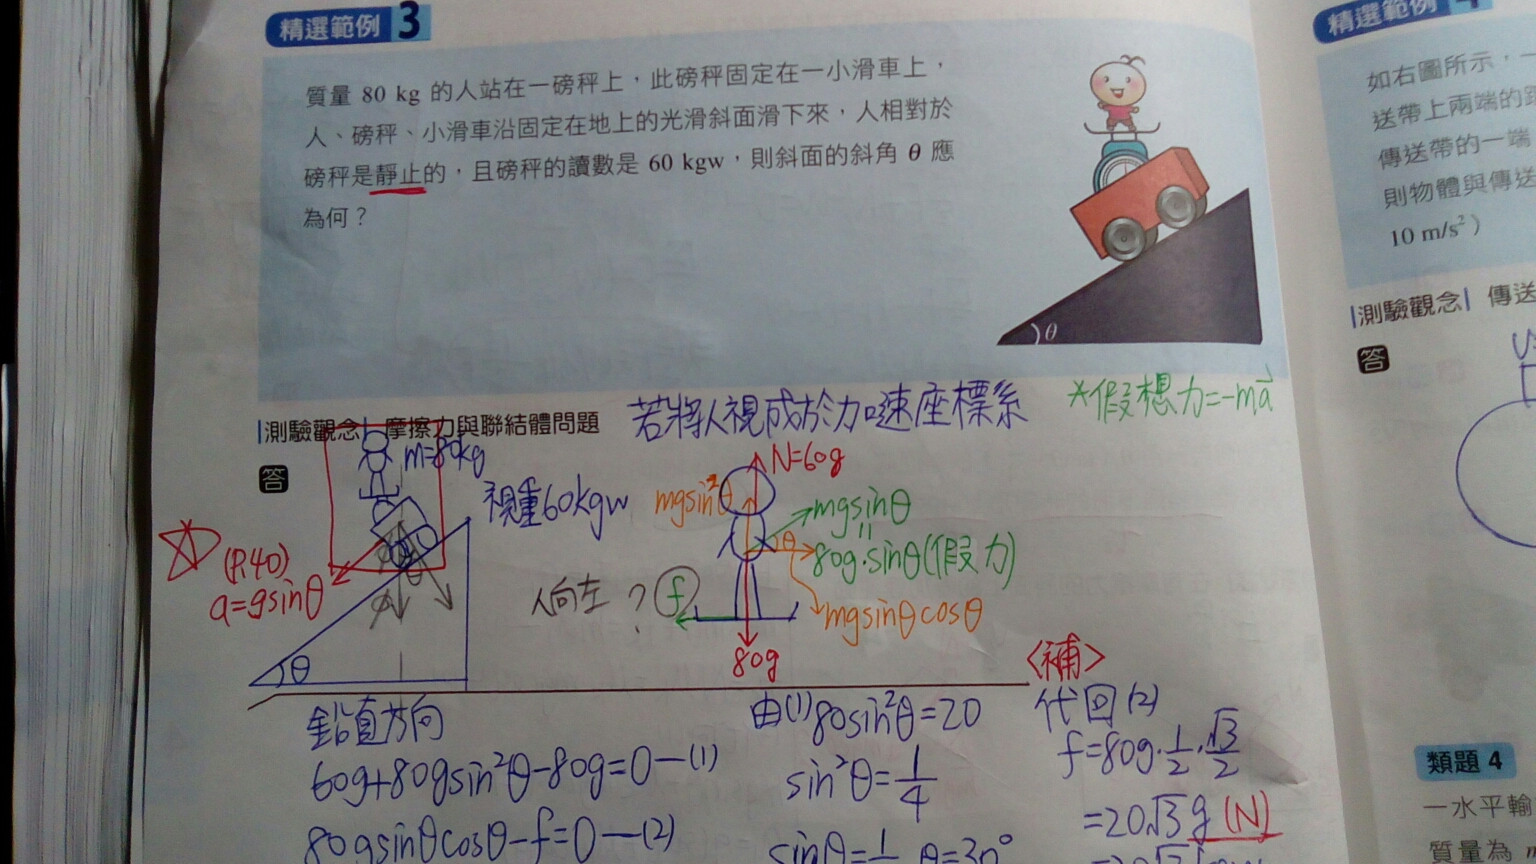 精選範例 3
質量 80 kg 的人站在一磅秤上，此磅秤固定在一小滑車上，
人、磅秤、小滑車沿固定在地上的光滑斜面滑下來，人相對於
磅秤是靜止的，且磅秤的讀數是 60 kgw，則斜面的斜角 θ 應
為何？
θ
測驗觀念 摩擦力與聯結體問題
若將人視成於加速座標系
*假想力=-ma⃗
答
m=80kg
視重60kgw
(P.40)
a=gsinθ
θ
N=60g
mgsin²θ
mgsinθ
=
θ
80g·sinθ(假力)
mgsinθcosθ
人向左 ?
f
80g
鉛直方向
60g+80gsin²θ-80g=0—(1)
80gsinθcosθ-f=0—(2)
由(1) 80sin²θ=20
sin²θ=1/4
<補>
代回(2)
f=80g·1/2·√3/2
=20√3g (N)
精選範例
如右圖所示，一
送帶上兩端的距
傳送帶的一端
則物體與傳送
10 m/s²）
測驗觀念 傳送
答
類題 4
一水平輸
質量為